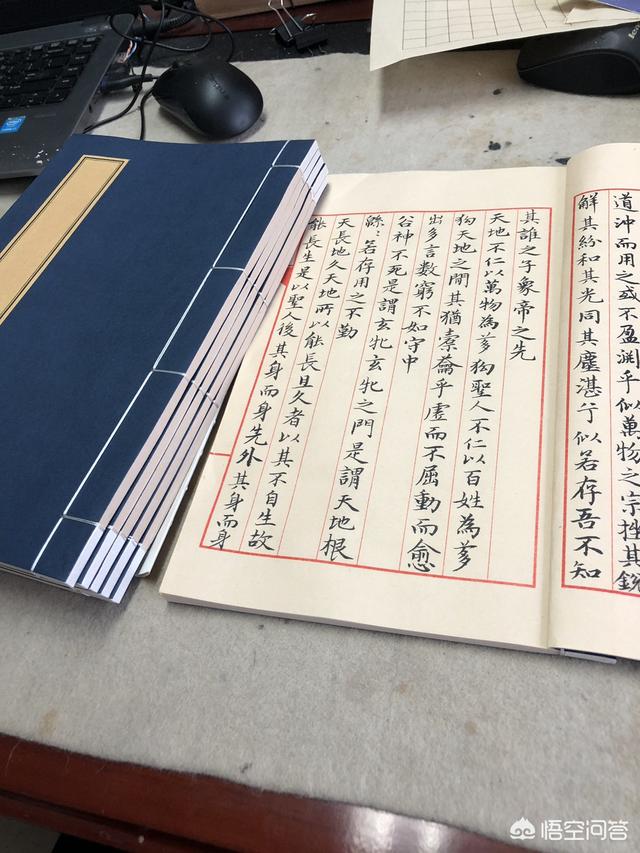 道沖而用之或不盈渊乎似萬物之宗挫其銳
解其紛和其光同其塵湛兮似若存吾不知
其誰之子象帝之先
天地不仁以萬物為芻狗聖人不仁以百姓為芻
狗天地之間其猶橐龠乎虛而不屈動而愈
出多言數窮不如守中
谷神不死是謂玄牝玄牝之門是謂天地根
緜〻若存用之不勤
天長地久天地所以能長且久者以其不自生故
能長生是以聖人後其身而身先外其身而身
悟空问答